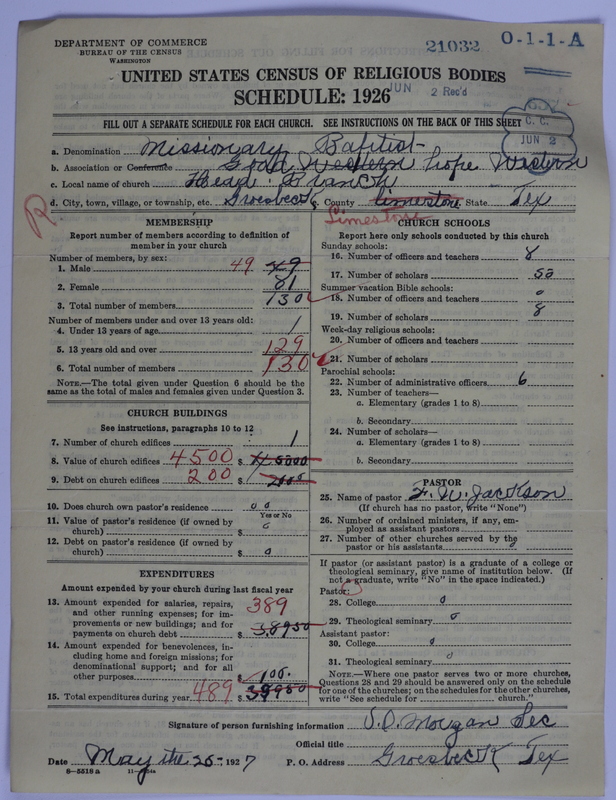 DEPARTMENT OF COMMERCE
BUREAU OF THE CENSUS
WASHINGTON
21032 O-1-1-A
UNITED STATES CENSUS OF RELIGIOUS BODIES
SCHEDULE: 1926
JUN 2 Rec'd
FILL OUT A SEPARATE SCHEDULE FOR EACH CHURCH. SEE INSTRUCTIONS ON THE BACK OF THIS SHEET
C. C.
JUN 2
a. Denomination Missionary Baptist
b. Association or Conference Good Western hope Western
c. Local name of church Head Branch
d. City, town, village, or township, etc. Groesbeck County Limestone State Tex
Limestone
R
MEMBERSHIP
Report number of members according to definition of member in your church
Number of members, by sex:
1. Male 49 49
2. Female 81
3. Total number of members 130
Number of members under and over 13 years old:
4. Under 13 years of age 1
5. 13 years old and over 129
6. Total number of members 130
NOTE.—The total given under Question 6 should be the same as the total of males and females given under Question 3.
CHURCH BUILDINGS
See instructions, paragraphs 10 to 12
7. Number of church edifices 1
8. Value of church edifices 4500
9. Debt on church edifices 200
10. Does church own pastor's residence
Yes or No
11. Value of pastor's residence (if owned by church) $ 0
12. Debt on pastor's residence (if owned by church) $ 0
EXPENDITURES
Amount expended by your church during last fiscal year
13. Amount expended for salaries, repairs, and other running expenses; for improvements or new buildings; and for payments on church debt 389 $ 38950
14. Amount expended for benevolences, including home and foreign missions; for denominational support; and for all other purposes $ 100.
15. Total expenditures during year 489 $ 39950
CHURCH SCHOOLS
Report here only schools conducted by this church
Sunday schools:
16. Number of officers and teachers 8
17. Number of scholars 52
Summer vacation Bible schools:
18. Number of officers and teachers 0
19. Number of scholars 8
Week-day religious schools:
20. Number of officers and teachers
21. Number of scholars
Parochial schools:
22. Number of administrative officers 6
23. Number of teachers—
a. Elementary (grades 1 to 8)
b. Secondary
24. Number of scholars—
a. Elementary (grades 1 to 8)
b. Secondary
PASTOR
25. Name of pastor F. W. Jackson
(If church has no pastor, write "None")
26. Number of ordained ministers, if any, employed as assistant pastors
27. Number of other churches served by the pastor or his assistants 0
If pastor (or assistant pastor) is a graduate of a college or theological seminary, give name of institution below. (If not a graduate, write "No" in the space indicated.)
Pastor:
28. College 0
29. Theological seminary 0
Assistant pastor:
30. College 0
31. Theological seminary 0
NOTE.—Where one pastor serves two or more churches, Questions 28 and 29 should be answered only on the schedule for one of the churches; on the schedules for the other churches, write "See schedule for church."
Signature of person furnishing information S. D. Morgan Sec
Official title
Date May the 25- , 1927 P. O. Address Groesbeck Tex
8-5518 a